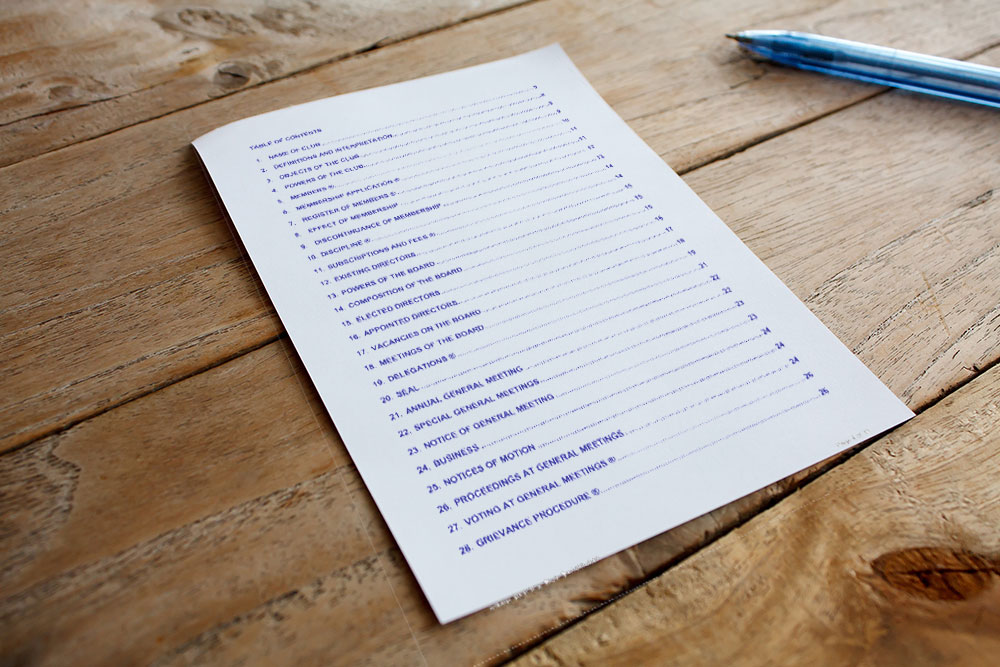 TABLE OF CONTENTS
1. NAME OF CLUB........ 3
2. DEFINITIONS AND INTERPRETATION........ 4
3. OBJECTS OF THE CLUB........ 9
4. POWERS OF THE CLUB........ 9
5. MEMBERS ®........ 10
6. MEMBERSHIP APPLICATION ®........ 11
7. REGISTER OF MEMBERS ®........ 11
8. EFFECT OF MEMBERSHIP........ 12
9. DISCONTINUANCE OF MEMBERSHIP........ 13
10. DISCIPLINE ®........ 14
11. SUBSCRIPTIONS AND FEES ®........ 14
12. EXISTING DIRECTORS........ 15
13. POWERS OF THE BOARD........ 15
14. COMPOSITION OF THE BOARD........ 15
15. ELECTED DIRECTORS........ 16
16. APPOINTED DIRECTORS........ 17
17. VACANCIES ON THE BOARD........ 18
18. MEETINGS OF THE BOARD........ 19
19. DELEGATIONS ®........ 21
20. SEAL........ 22
21. ANNUAL GENERAL MEETING........ 22
22. SPECIAL GENERAL MEETINGS........ 23
23. NOTICE OF GENERAL MEETING........ 23
24. BUSINESS........ 24
25. NOTICES OF MOTION........ 24
26. PROCEEDINGS AT GENERAL MEETINGS........ 24
27. VOTING AT GENERAL MEETINGS ®........ 26
28. GRIEVANCE PROCEDURE ®........ 26